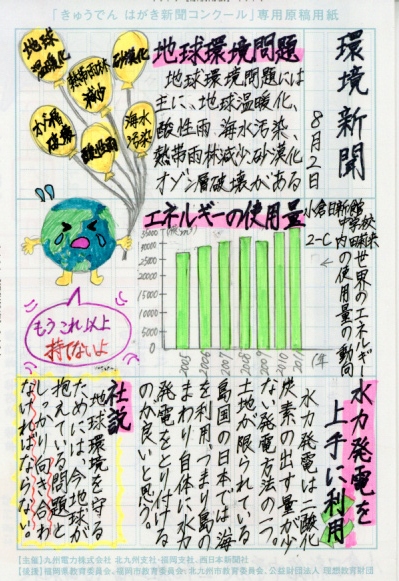 「きゅうでん はがき新聞コンクール」専用原稿用紙
環境新聞
8月2日
小倉日新館
中学校
2-C
地球環境問題
地球環境問題には
主に、地球温暖化、
酸性雨、海水汚染、
熱帯雨林減少、砂漠化
オゾン層破壊がある
地球
温暖化
砂漠化
熱帯雨林
減少
オゾン層
破壊
酸性雨
海水
汚染
もうこれ以上
持てないよ
エネルギーの使用量
35000
30000
25000
20000
15000
10000
5000
0
2005
2006
2007
2008
2009
2010
2011
(年
世界のエネルギー
の使用量の動向
水力発電を
上手に利用
水力発電は二酸化
炭素の出す量が少
ない発電方法の一つ。
土地が限られている
島国の日本では海
を利用、つまり島の
まわり自体に水力
発電をとり付ける
のが良いと思う。
社説
地球環境を守る
ためには、今地球が
抱えている問題と
しっかり向き合わ
なければならない
【主催】九州電力株式会社 北九州支社・福岡支社、西日本新聞社
【後援】福岡県教育委員会、福岡市教育委員会、北九州市教育委員会、公益財団法人 理想教育財団